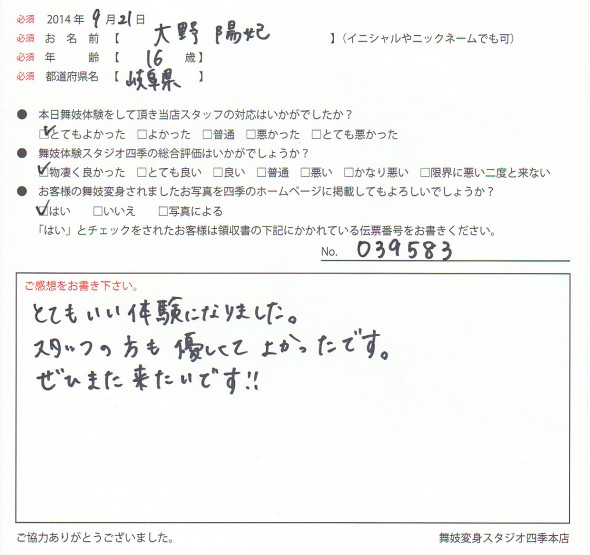 必須 2014年 9月21日
必須 お名前【 大野 陽妃 】（イニシャルやニックネームでも可）
必須 年齢【 16 歳】
必須 都道府県名【 岐阜県 】
● 本日舞妓体験をして頂き当店スタッフの対応はいかがでしたか？
☑とてもよかった □よかった □普通 □悪かった □とても悪かった
● 舞妓体験スタジオ四季の総合評価はいかがでしょうか？
☑物凄く良かった □とても良い □良い □普通 □悪い □かなり悪い □限界に悪い二度と来ない
● お客様の舞妓変身されましたお写真を四季のホームページに掲載してもよろしいでしょうか？
☑はい □いいえ □写真による
「はい」とチェックをされたお客様は領収書の下記にかかれている伝票番号をお書きください。
No. 039583
ご感想をお書き下さい。
とてもいい体験になりました。
スタッフの方も優しくてよかったです。
ぜひまた来たいです!!
ご協力ありがとうございました。 舞妓変身スタジオ四季本店